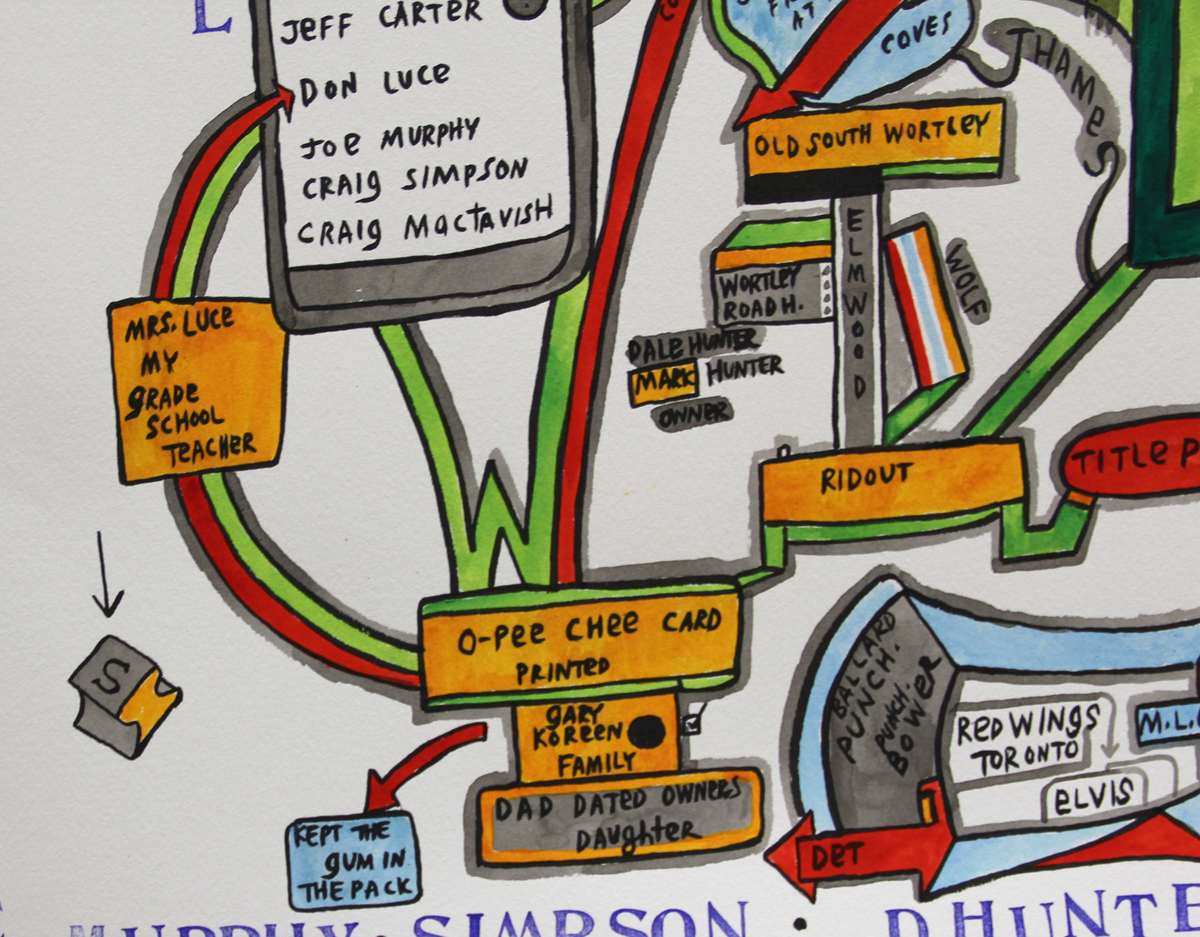 L
JEFF CARTER
DON LUCE
JOE MURPHY
CRAIG SIMPSON
CRAIG MACTAVISH
AT
COVES
THAMES
OLD SOUTH WORTLEY
ELMWOOD
WORTLEY
ROAD H.
WOLF
DALE HUNTER
MARK HUNTER
OWNER
MRS. LUCE
MY
GRADE
SCHOOL
TEACHER
RIDOUT
TITLE P
S
O-PEE CHEE CARD
PRINTED
GARY
KOREEN
FAMILY
DAD DATED OWNERS
DAUGHTER
KEPT THE
GUM IN
THE PACK
BALLARD
PUNCH.
PUNCH.
BOWER
RED WINGS
TORONTO
M.L.
ELVIS
DET
MURPHY · SIMPSON · DHUNTE